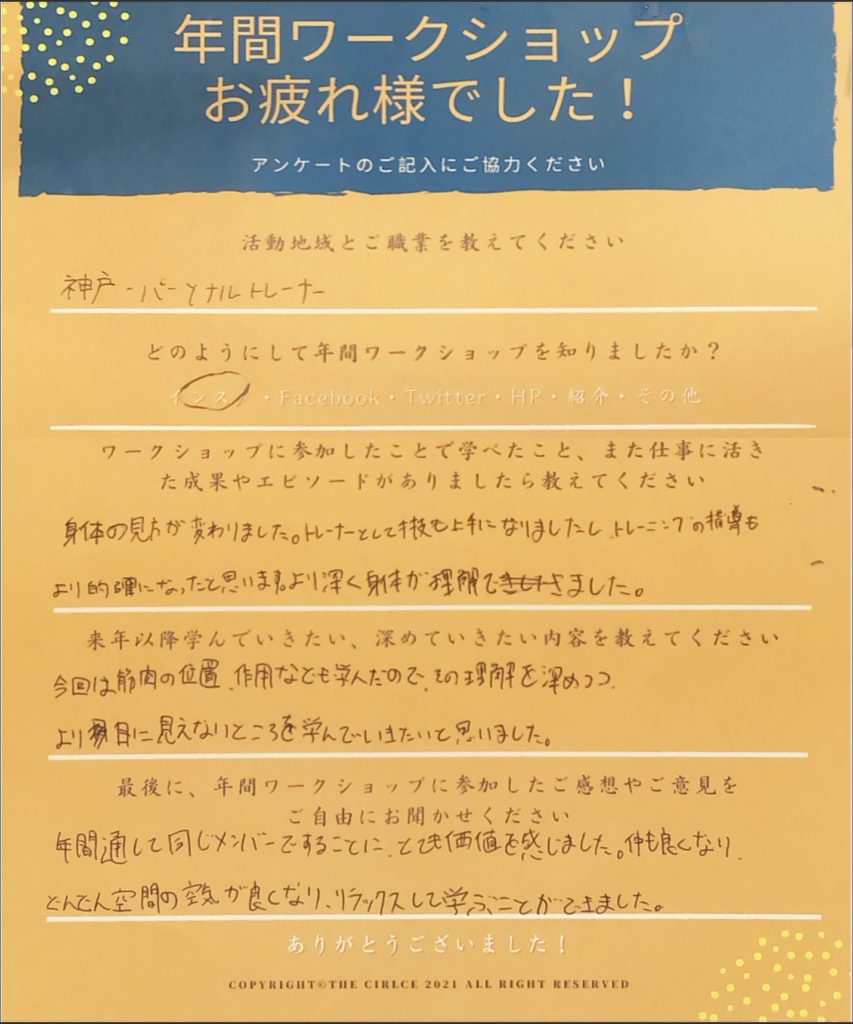 年間ワークショップ
お疲れ様でした！
アンケートのご記入にご協力ください
活動地域とご職業を教えてください
神戸・パーソナルトレーナー
どのようにして年間ワークショップを知りましたか？
インスタ・Facebook・Twitter・HP・紹介・その他
ワークショップに参加したことで学べたこと、また仕事に活き
た成果やエピソードがありましたら教えてください
身体の見方が変わりました。トレーナーとして技も上手になりましたし、トレーニングの指導も
より的確になったと思います。より深く身体が理解できました。
来年以降学んでいきたい、深めていきたい内容を教えてください
今回は筋肉の位置、作用なども学んだので、その理解を深めつつ、
より目に見えないところを学んでいきたいと思いました。
最後に、年間ワークショップに参加したご感想やご意見を
ご自由にお聞かせください
年間通して同じメンバーですることに、とても価値を感じました。仲も良くなり、
どんどん空間の空気が良くなり、リラックスして学ぶことができました。
ありがとうございました！
COPYRIGHT©THE CIRLCE 2021 ALL RIGHT RESERVED